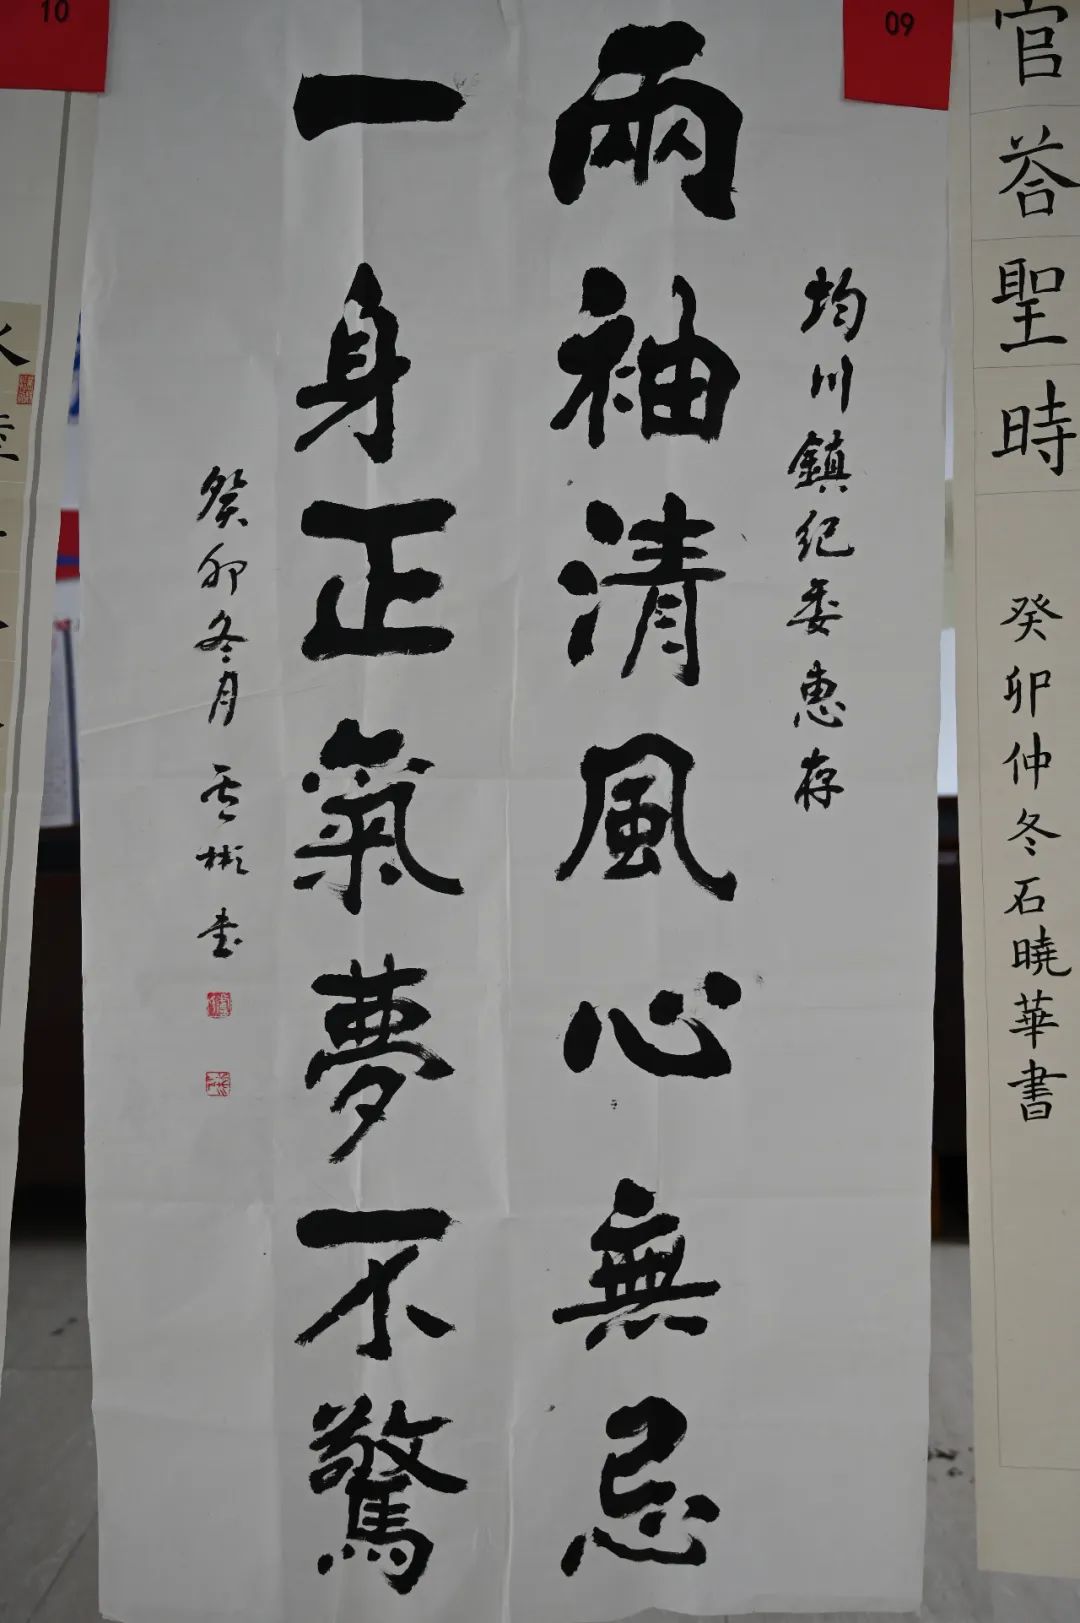 10
09
官荅聖時
癸卯仲冬石曉華書
均川鎮紀委惠存
兩袖清風心無忌
一身正氣夢不驚
癸卯冬月 彬書